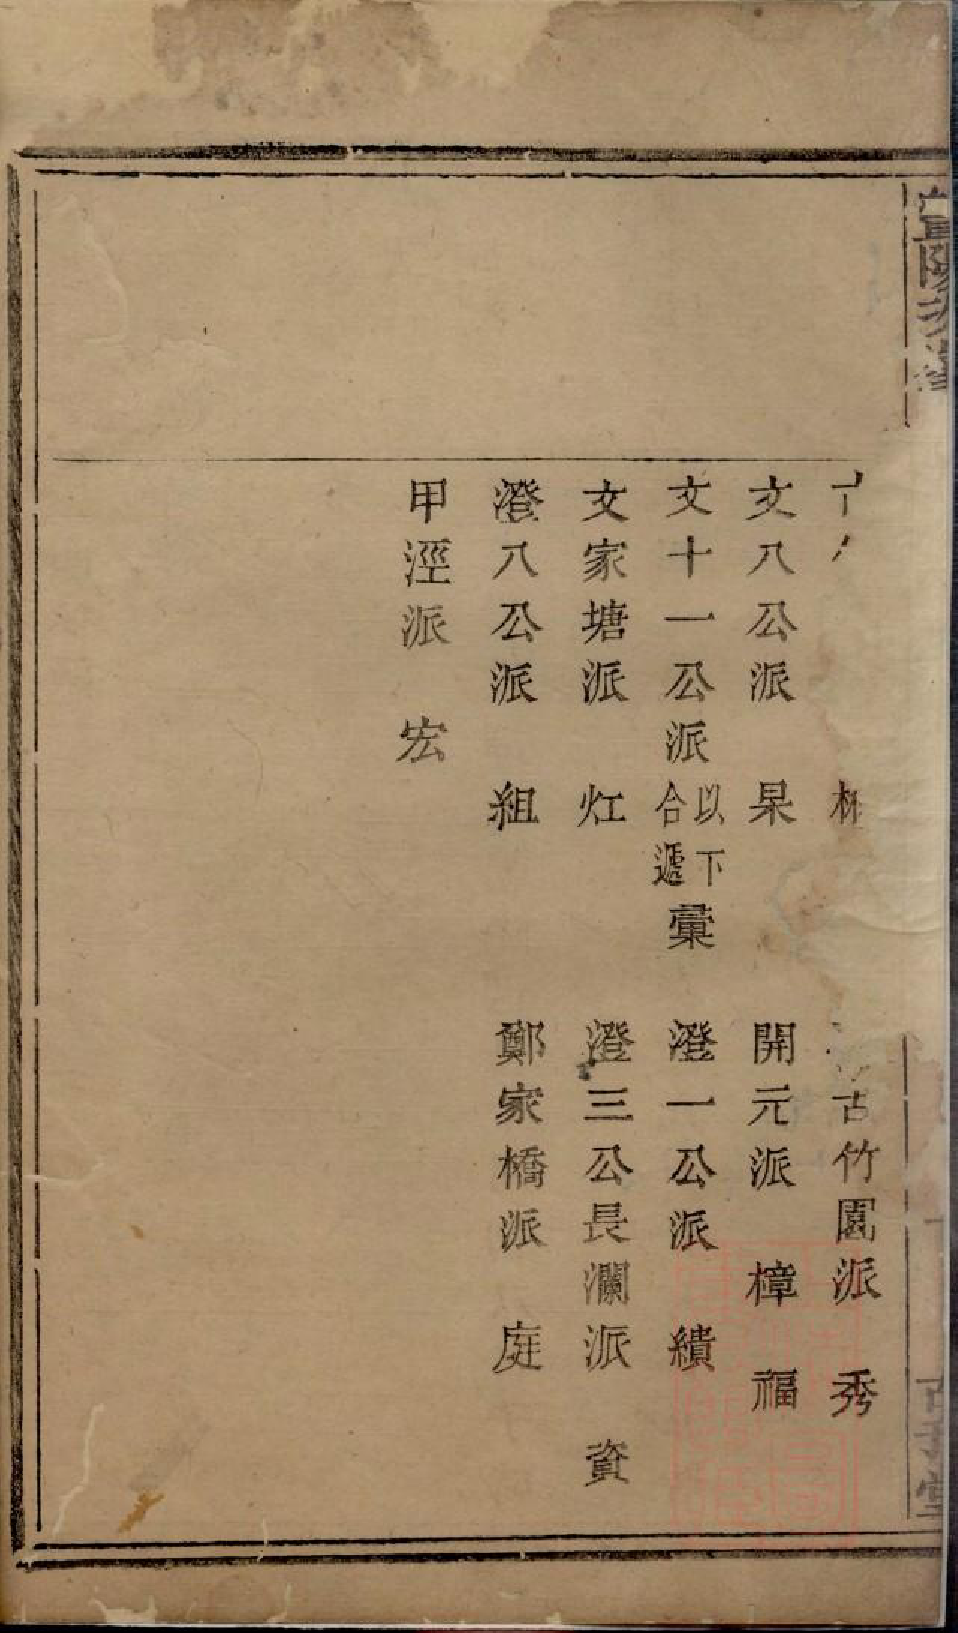 林
古竹園派 秀
文八公派 杲
開元派 樟 福
文十一公派 以下合遞 彙
澄一公派 績
文家塘派 灴
澄三公長瀾派 資
澄八公派 組
鄭家橋派 庭
甲涇派 宏